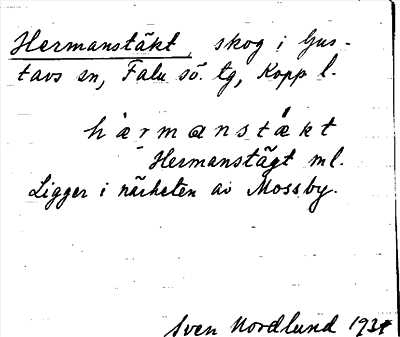 Hermanstäkt, skog i Gus-
tavs sn, Falu sö. tg, Kopp l.
hàrmanstækt
Hermanstägt ml.
Ligger i närheten av Mossby.
Sven Nordlund